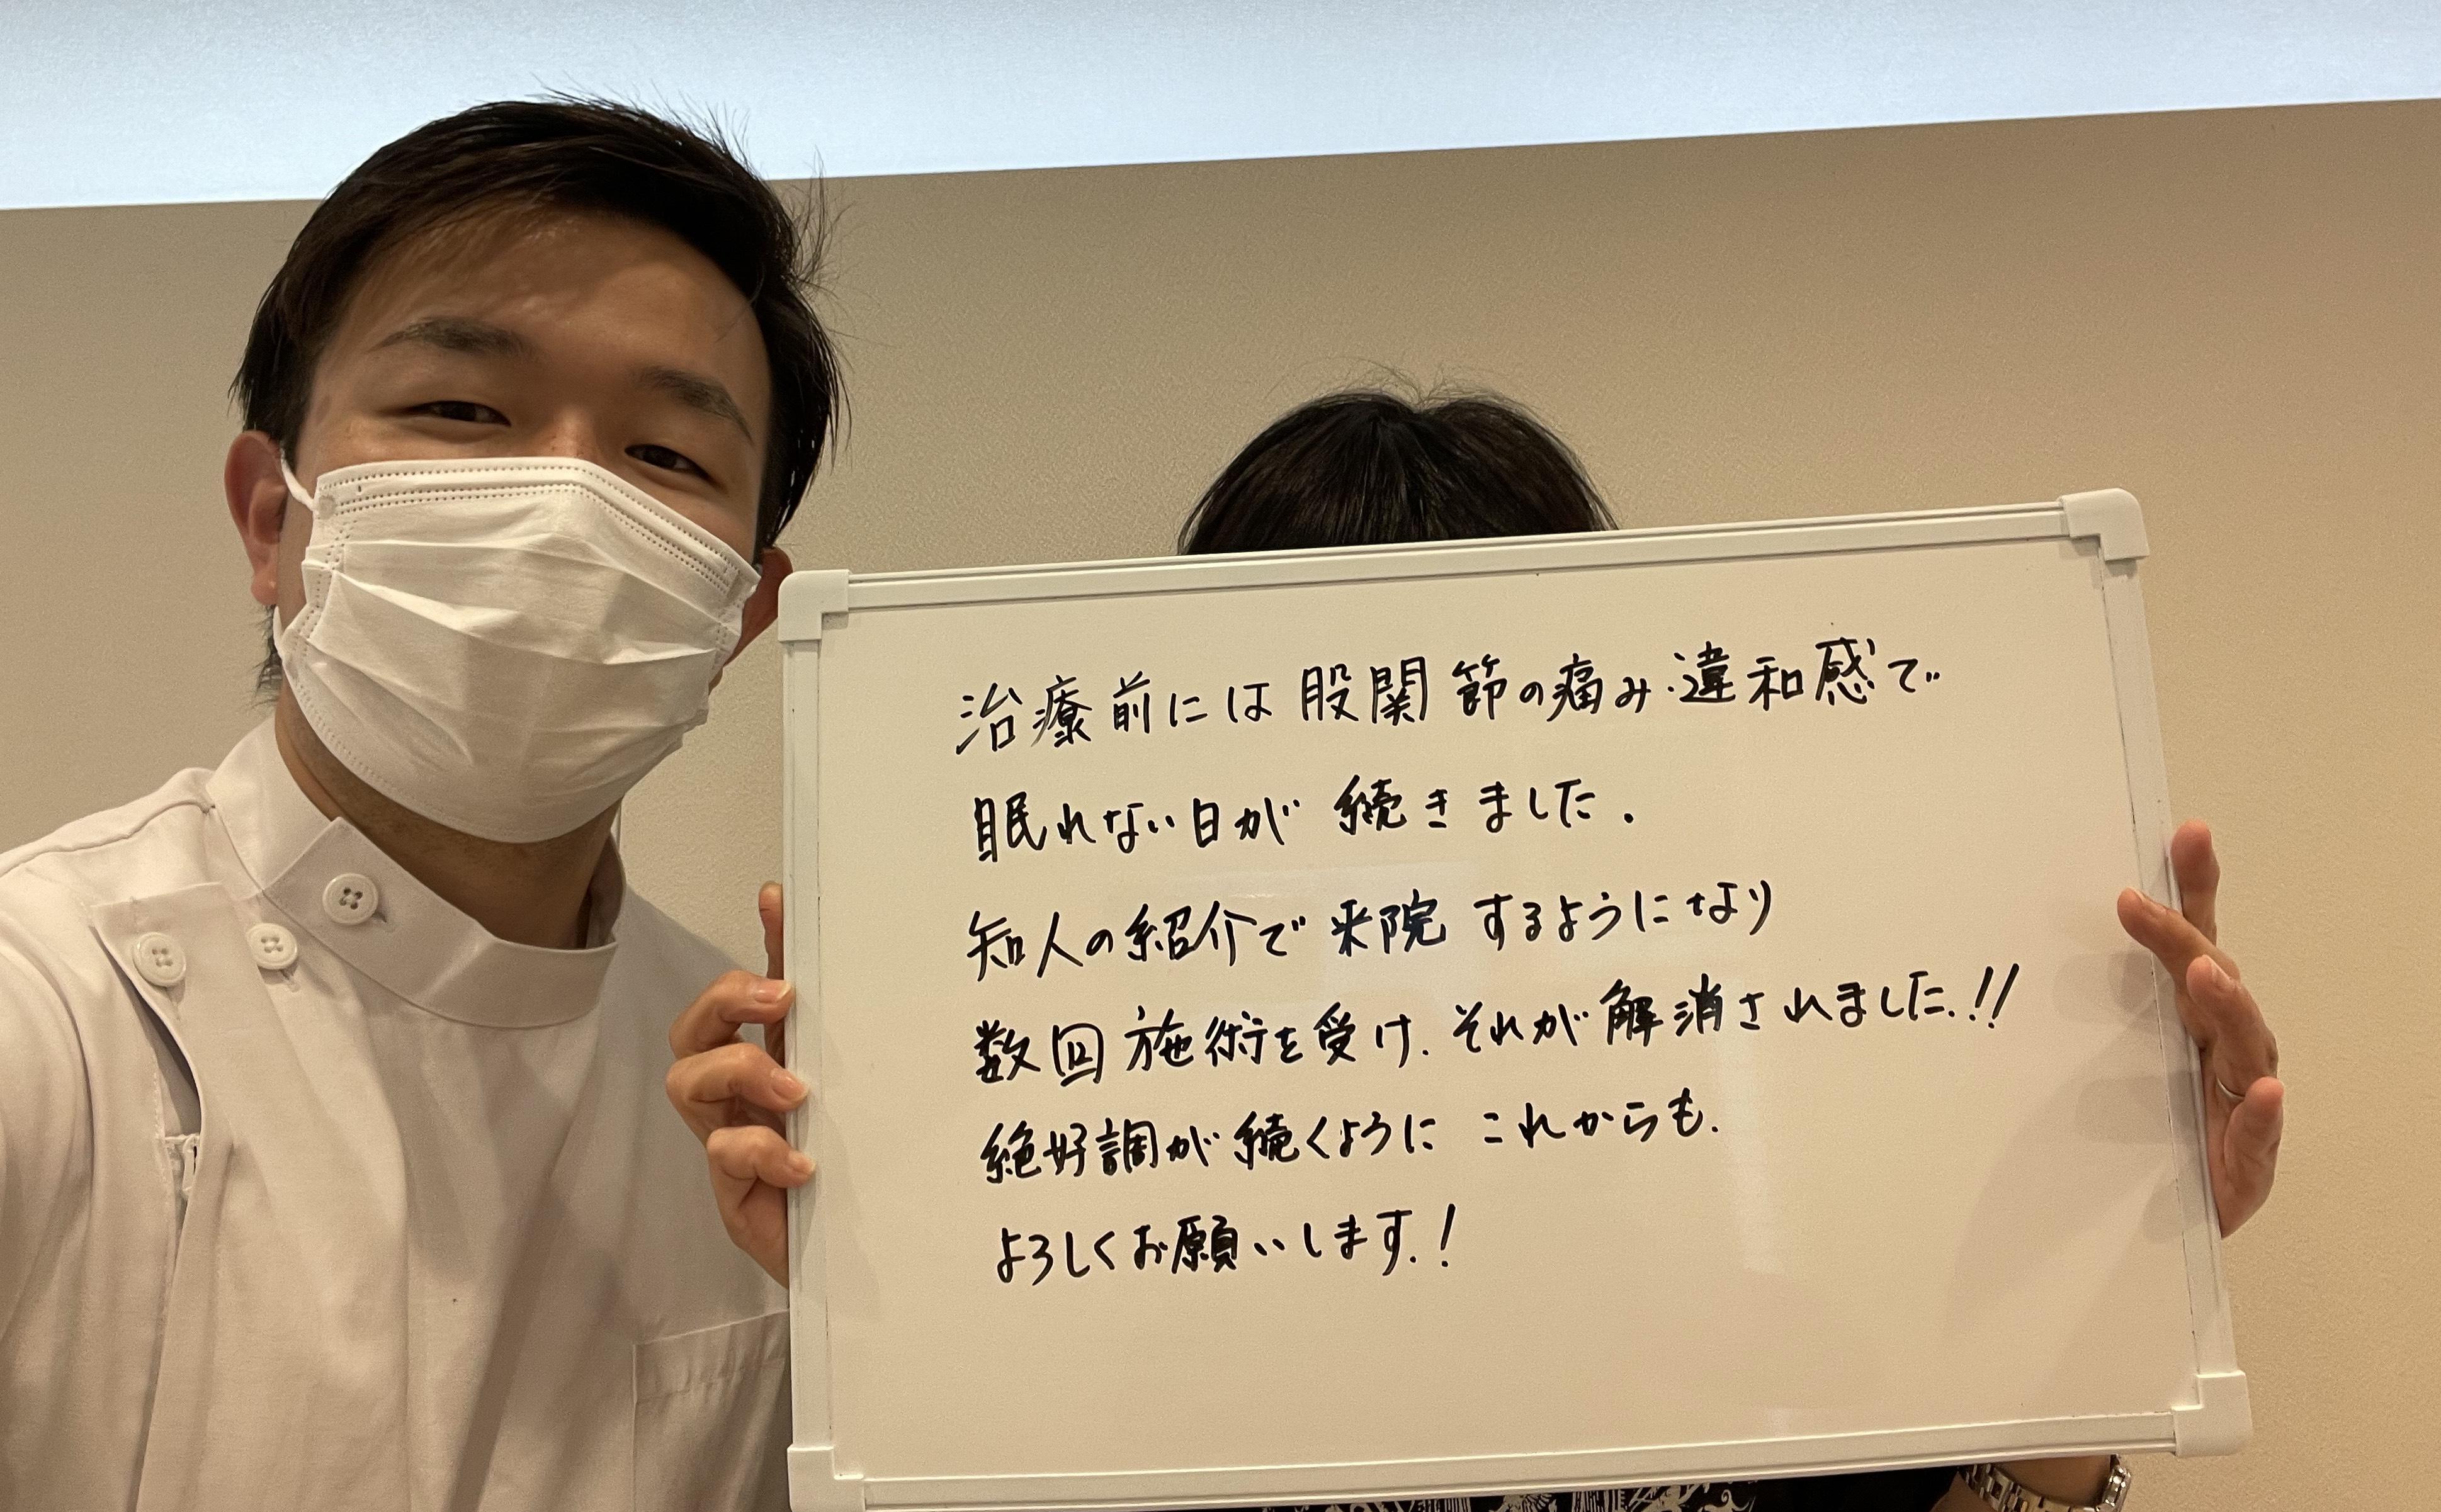 治療前には股関節の痛み・違和感で
眠れない日が続きました.
知人の紹介で来院するようになり
数回施術を受け.それが解消されました.!!
絶好調が続くように これからも.
よろしくお願いします.!